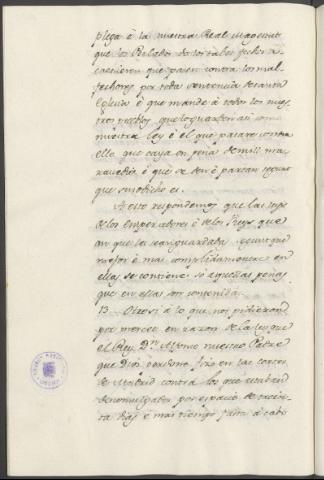 plega à la nuestra Real Magestad
que los Perlados do los tales fechos a-
caescieren que pasen contra los mal-
fechores por toda sentencia de Santa
Iglesia è que mande à todos los nues-
tros pueblos, que lo guarden asi como
nuestra Ley è el que pasare contra
ello que caya en pena de mill ma-
ravedis, è que se den è partan segun
que susodicho es.
A esto respondemos que las leys
de los Emperadores è de los Reys que
an que la sean guardadas segun que
mejor è mas complidamente en
ellas se contiene, so aquellas penas
que en ellas son contenidas.
13. Otrosi, à lo que nos pidieron
por merced en razon de la Ley que
el Rey Dn. Alfonso nuestro Padre
que Dios perdone fizo en las cortes
de Madrid contra los que estubieren
denunciados por espacio de trein-
ta dias è mas tiempo fasta à cabo